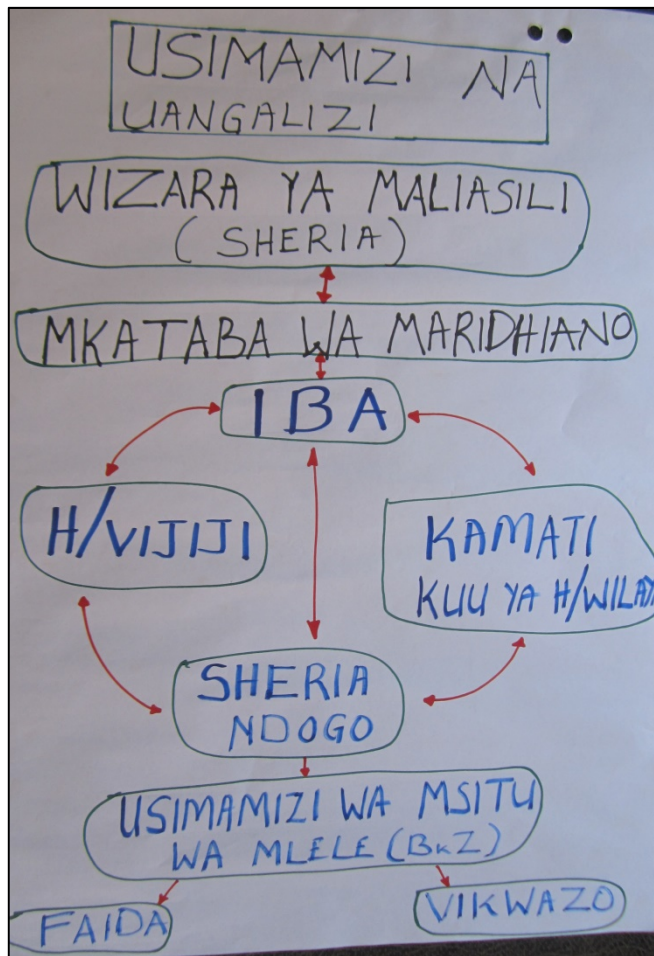 USIMAMIZI NA
UANGALIZI
WIZARA YA MALIASILI
(SHERIA)
MKATABA WA MARIDHIANO
IBA
H/VIJIJI
KAMATI
KUU YA H/WILAYA
SHERIA
NDOGO
USIMAMIZI WA MSITU
WA MLELE (BKZ)
FAIDA
VIKWAZO